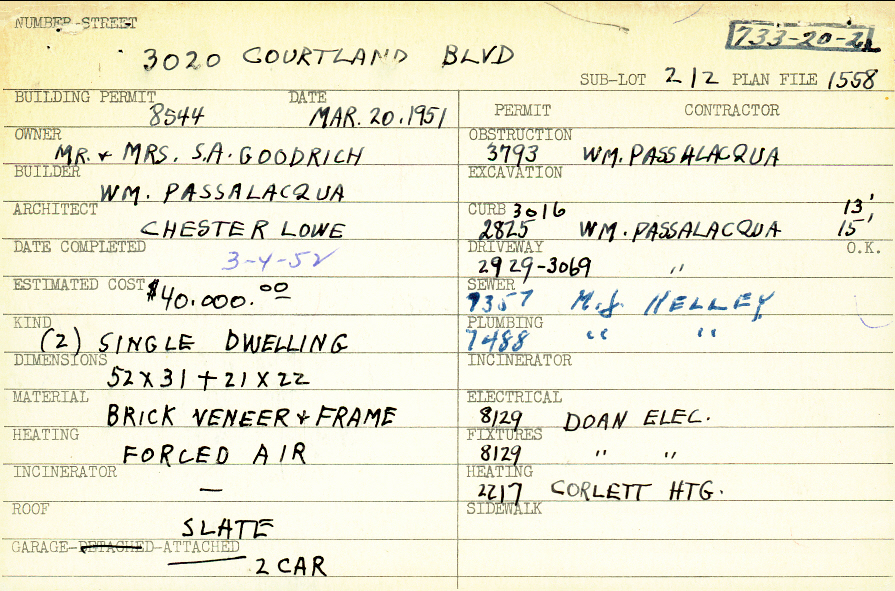 NUMBER-STREET
3020 COURTLAND BLVD
733-20-22
SUB-LOT 212 PLAN FILE 1558
BUILDING PERMIT DATE
8544 MAR. 20, 1951
OWNER
MR. & MRS. S.A. GOODRICH
BUILDER
WM. PASSALACQUA
ARCHITECT
CHESTER LOWE
DATE COMPLETED
3-4-52
ESTIMATED COST $40.000.00
KIND
(2) SINGLE DWELLING
DIMENSIONS
52 X 31 + 21 X 22
MATERIAL
BRICK VENEER & FRAME
HEATING
FORCED AIR
INCINERATOR
—
ROOF
SLATE
GARAGE-DETACHED-ATTACHED
2 CAR
PERMIT CONTRACTOR
OBSTRUCTION
3793 WM. PASSALACQUA
EXCAVATION
CURB 3016 13'
2825 WM. PASSALACQUA 15'
DRIVEWAY O.K.
2929-3069 "
SEWER
7357 M.J. KELLEY
PLUMBING
7488 " "
INCINERATOR
ELECTRICAL
8129 DOAN ELEC.
FIXTURES
8129 " "
HEATING
2217 CORLETT HTG.
SIDEWALK